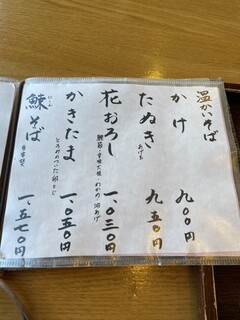 温かいそば
かけ 九〇〇円
たぬき あげ玉 九五〇円
花おろし 一、〇三〇円
かきたま とろみのついた卵とじ 一、〇五〇円
鰊そば 一、五七〇円